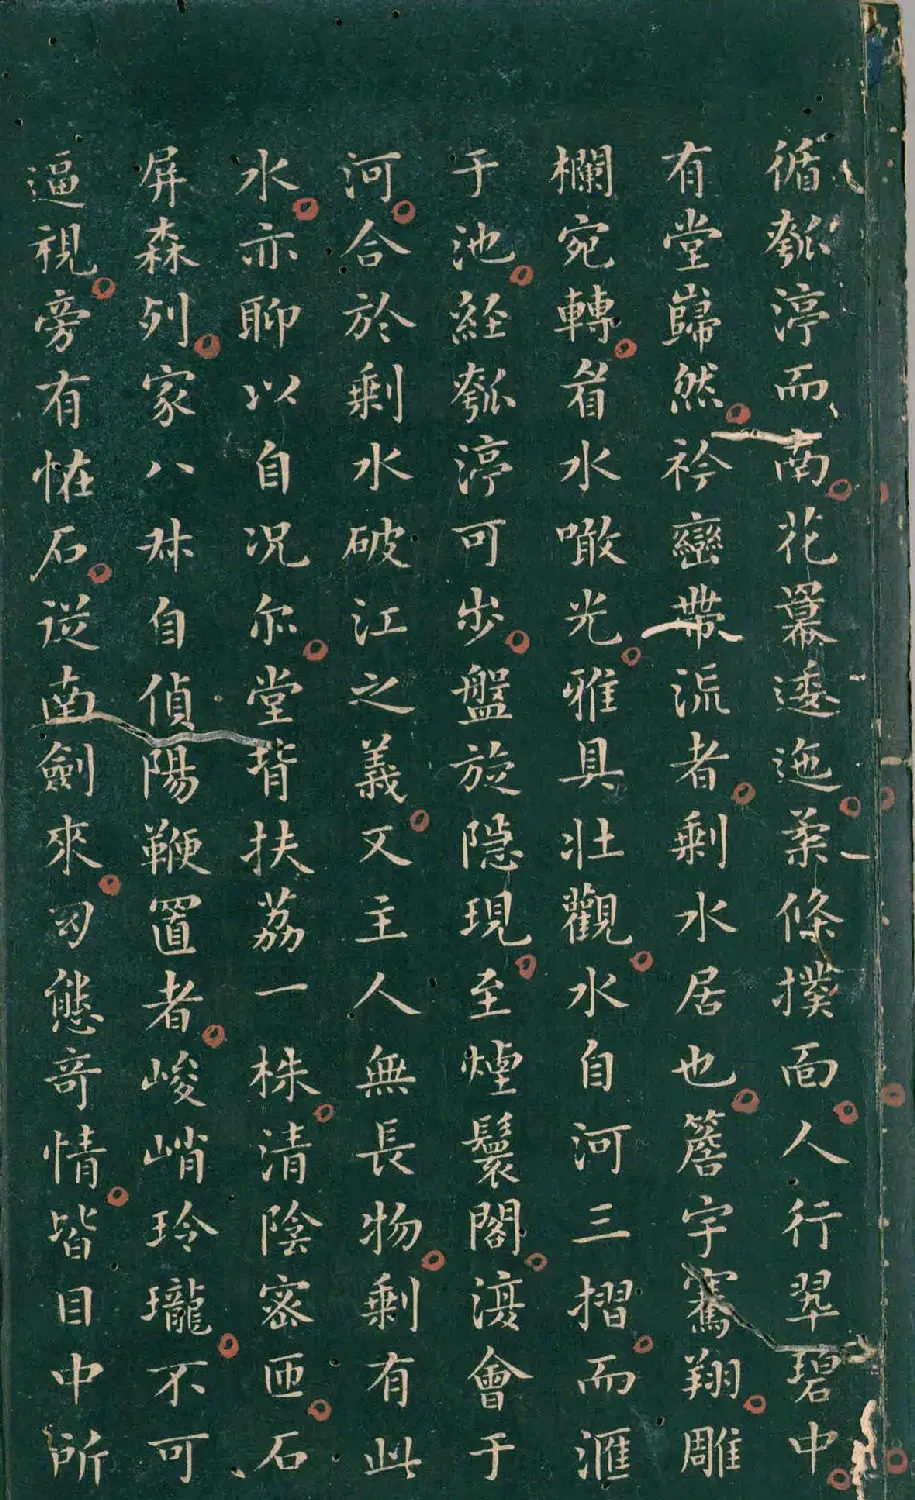 循瓠渟而南花羃逶迤柔條撲面人行翠碧中
有堂巋然衿巒帶流者剩水居也簷宇騫翔雕
欄宛轉眉水噉光雅具壯觀水自河三摺而滙
于池經瓠渟可步盤旋隱現至煙鬟閣復會于
河合於剩水破江之義又主人無長物剩有此
水亦聊以自况尔堂背扶荔一株清陰密匝石
屏森列家八州自偵陽鞭置者峻峭玲瓏不可
逼視旁有怪石從南劍來幻態奇情皆目中所